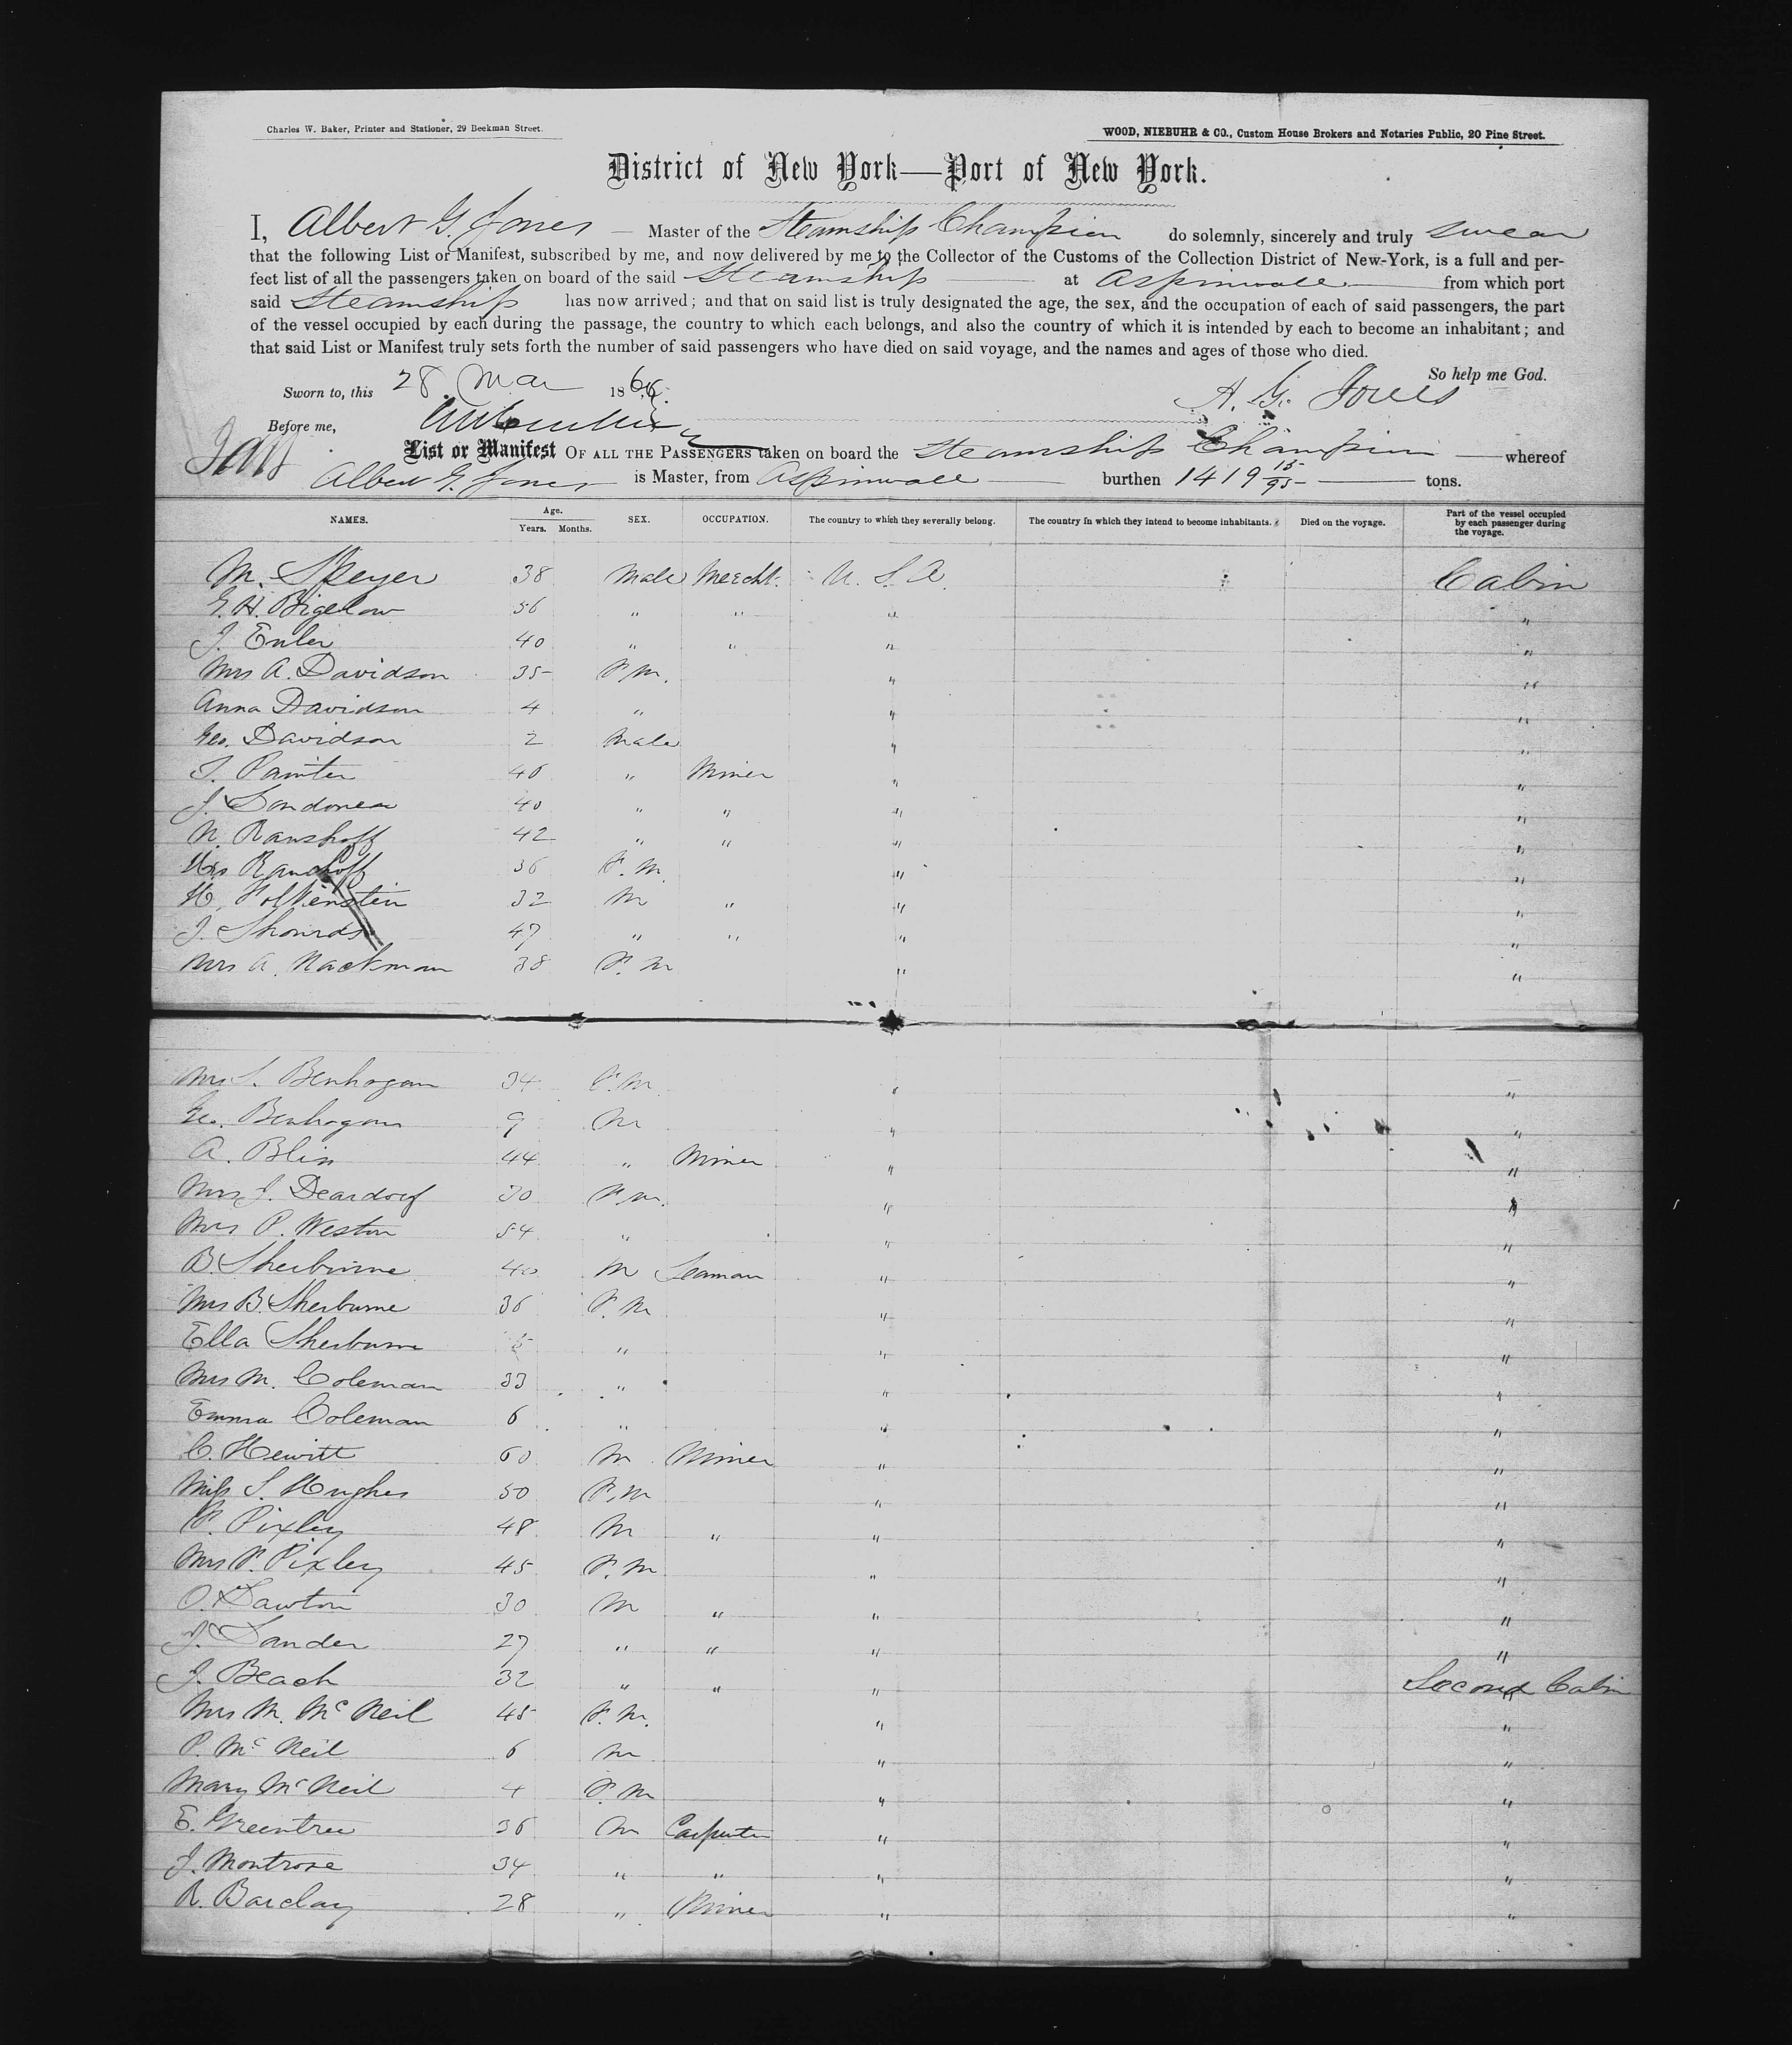 Charles W. Baker, Printer and Stationer, 29 Beekman Street.
WOOD, NIEBUHR & CO., Custom House Brokers and Notaries Public, 20 Pine Street.
District of New York—Port of New York.
I, Albert G. Jones — Master of the Steamship Champion do solemnly, sincerely and truly swear
that the following List or Manifest, subscribed by me, and now delivered by me to the Collector of the Customs of the Collection District of New-York, is a full and per-
fect list of all the passengers taken on board of the said Steamship at Aspinwall from which port
said Steamship has now arrived; and that on said list is truly designated the age, the sex, and the occupation of each of said passengers, the part
of the vessel occupied by each during the passage, the country to which each belongs, and also the country of which it is intended by each to become an inhabitant; and
that said List or Manifest truly sets forth the number of said passengers who have died on said voyage, and the names and ages of those who died.
So help me God.
Sworn to, this 28 Mar 1866. A. G. Jones
Before me,
List or Manifest OF ALL THE PASSENGERS taken on board the Steamship Champion — whereof
Albert G. Jones is Master, from Aspinwall burthen 1419 15/95 tons.
NAMES. Age. Years. Months. SEX. OCCUPATION. The country to which they severally belong. The country in which they intend to become inhabitants. Died on the voyage. Part of the vessel occupied by each passenger during the voyage.
M. Speyer 38 Male Mercht. U. S. A. Cabin
G. H. Bigelow 56 " " " "
J. Euler 40 " " " "
Mrs A. Davidson 35 F.M. " "
Anna Davidson 4 " " "
Geo. Davidson 2 Male " "
T. Painter 46 " Miner " "
J. 40 " " " "
N. Ranshoff 42 " " " "
Mrs Ranshoff 36 F. M. " "
32 M " " "
J. Shourds 47 " " " "
Mrs A. Hackman 38 F. M " "
Mrs S. Benhogan 34 F. M " "
Geo. Benhogan 9 M " "
A. Blin 44 " Miner " "
Mrs J. Deardorf 30 F. M. " "
Mrs P. Weston 54 " " "
B. Sherburne 40 M Seaman " "
Mrs B. Sherburne 36 F. M " "
Ella Sherburne " " "
Mrs M. Coleman 33 " " "
Emma Coleman 6 " " "
C. Hewitt 60 M Miner " "
Miss S. Hughes 50 F. M " "
P. Pixley 48 M " " "
Mrs P. Pixley 45 F. M " "
O. Lawton 30 M " " "
J. Lander 27 " " " "
J. Beach 32 " " " Second Cabin
Mrs M. McNeil 45 F. M. " "
P. McNeil 6 M " "
Mary McNeil 4 F. M " "
E. Greentree 36 M Carpenter " "
J. Montrose 34 " " " "
R. Barclay 28 " Miner " "